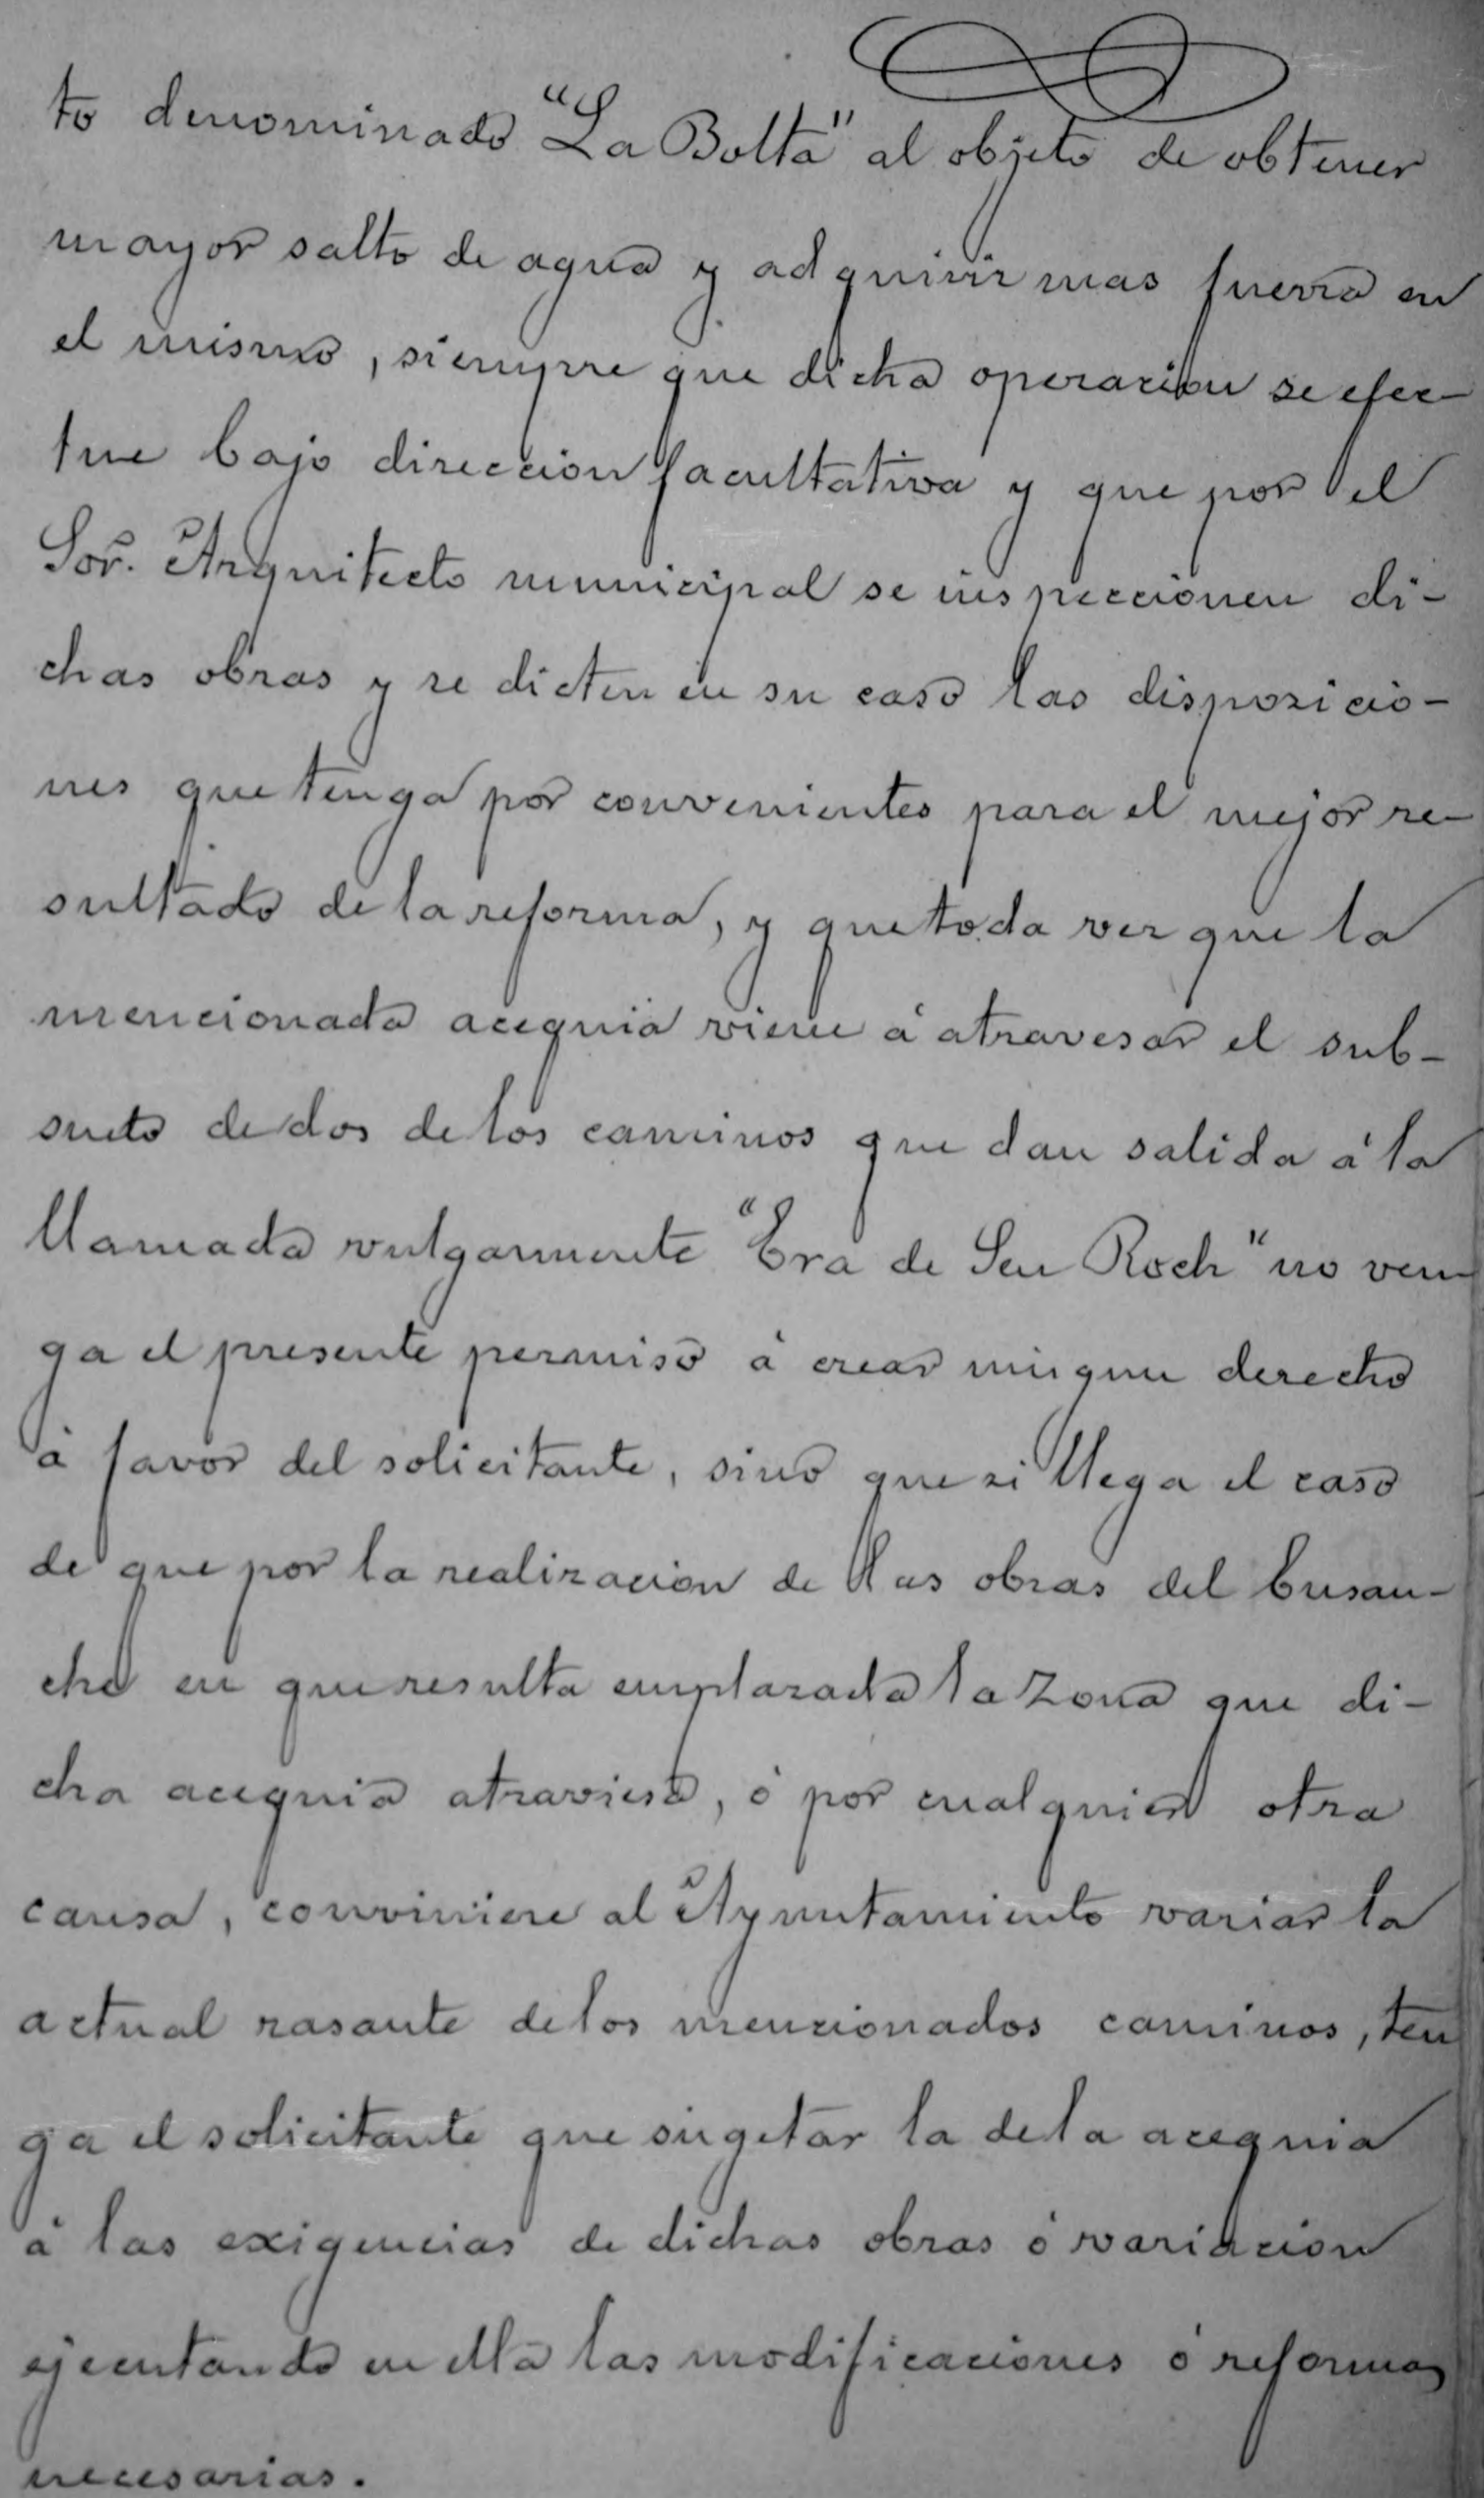 to denominado "La Bolta" al objeto de obtener
mayor salto de agua y adquirir mas fuerza en
el mismo, siempre que dicha operacion se efec-
tue bajo direccion facultativa y que por el
Sor. Arquitecto municipal se inspeccionen di-
chas obras y se dicten en su caso las disposicio-
nes que tenga por convenientes para el mejor re-
sultado de la reforma, y que toda vez que la
mencionada acequia viene á atravesar el sub-
suelo de dos de los caminos que dan salida á la
llamada vulgarmente "Era de Sen Roch" no ven
ga el presente permiso á crear ningun derecho
á favor del solicitante, sino que si llega el caso
de que por la realizacion de las obras del Ensan-
che en que resulta emplazada la zona que di-
cha acequia atraviesa, ó por cualquier otra
causa, conviniere al Ayuntamiento variar la
actual rasante de los mencionados caminos, ten
ga el solicitante que sugetar la de la acequia
á las exigencias de dichas obras ó variacion
ejecutando en ella las modificaciones ó reformas
necesarias.